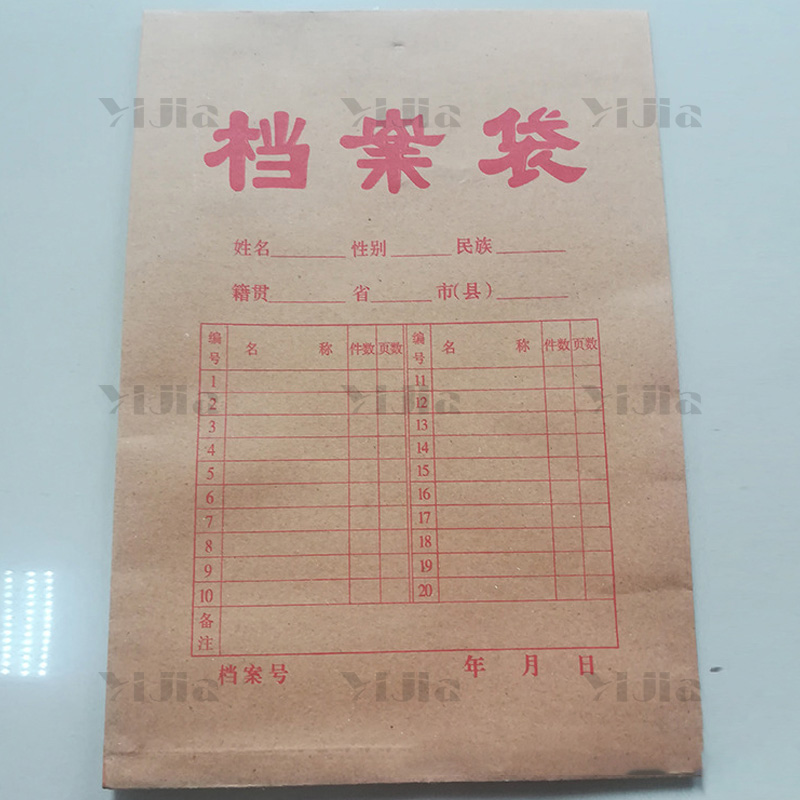 YiJia YiJia YiJia
档案袋
姓名______ 性别______ 民族______
籍贯______ 省______ 市(县)______
编号 名 称 件数 页数 编号 名 称 件数 页数
1 11
YiJia YiJia YiJia
2 12
3 13
4 14
5 15
6 16
7 17
8 18
9 19
10 20
备注
档案号 年 月 日
YiJia YiJia YiJia